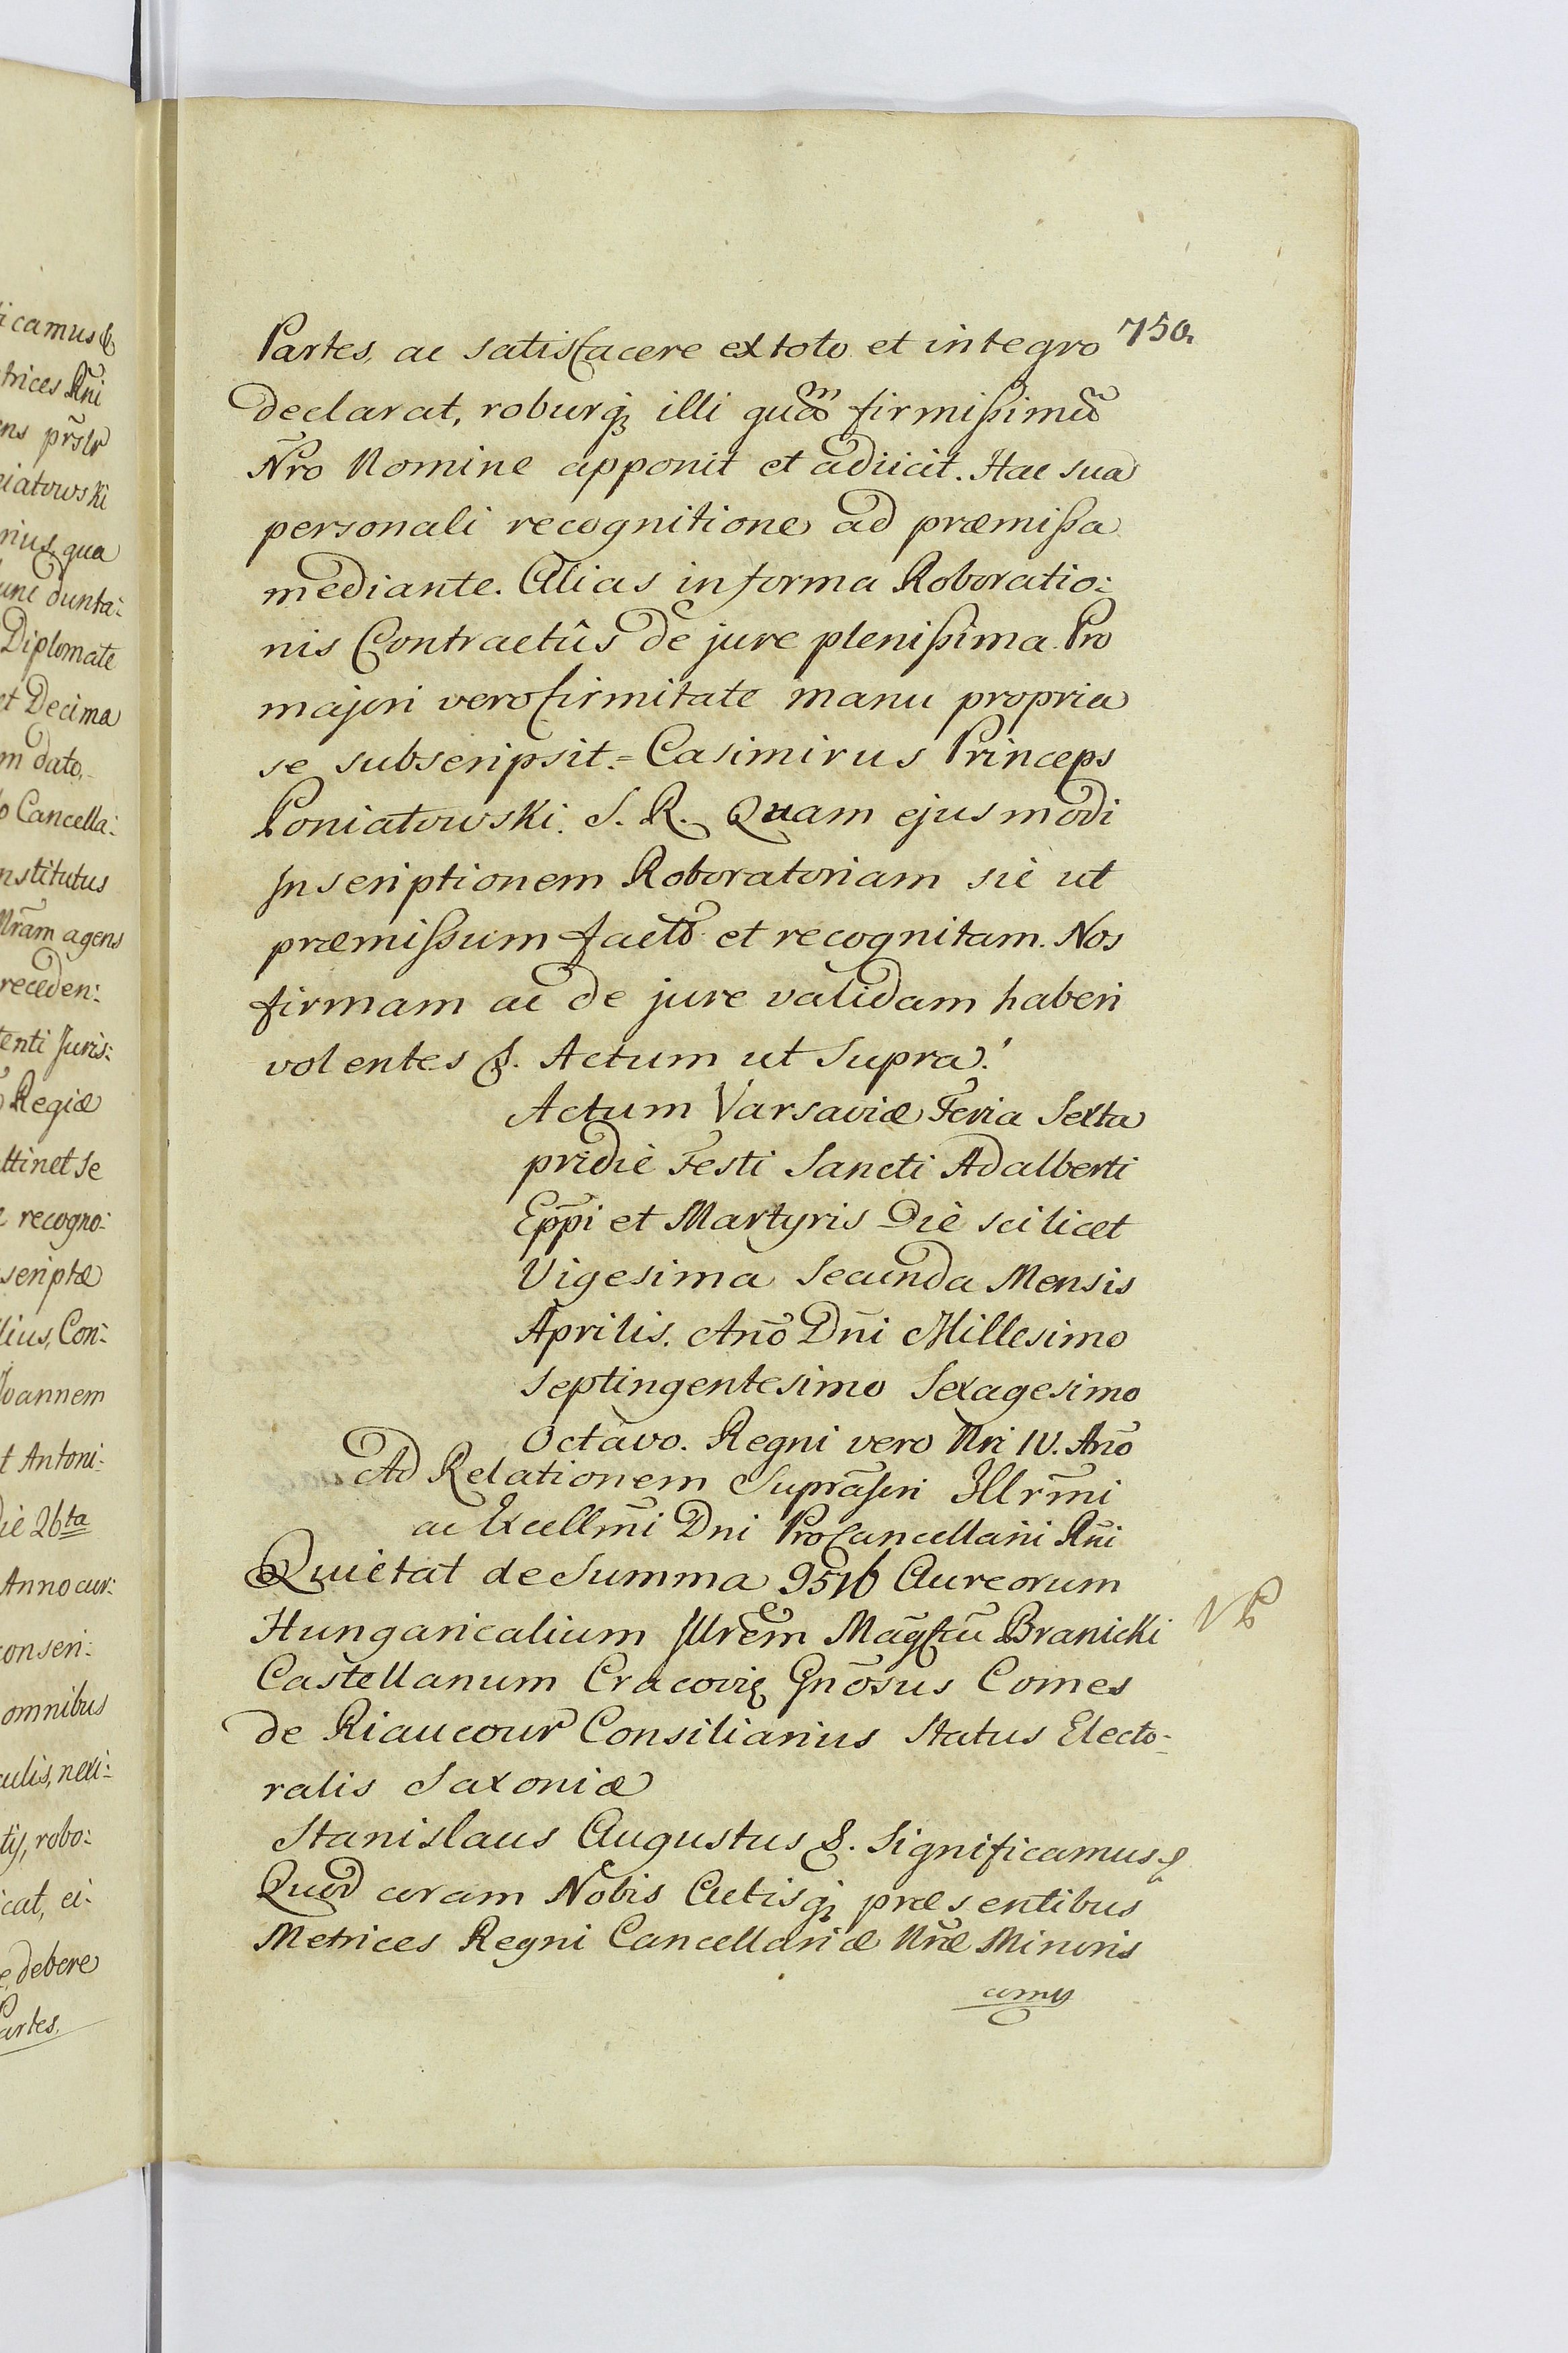 icamus &
trices Rn̄i
ns prs̄tr
niatowski
rius qua
unc dunta:
Diplomate
et Decima
m dato.
o Cancella:
nstitutus
Nrām agens
receden:
tenti Juris:
Regiæ
ttinet se
recogno:
scriptæ
lius, Con:
Joannem
t Antoni:
Die 26ta
Anno cur:
conscri:
omnibus
culis, nexi:
tij, robo:
icat, ei:
debere
Partes.
750.
Partes, ac satisfacere ex toto et integro
declarat, roburq; illi quam firmissimū
Nr̄o Nomine apponit et adiicit. Hac sua
personali recognitione ad præmissa
mediante. Alias in forma Roboratio:
nis Contractûs de jure plenissima. Pro
majori vero firmitate manu propria
se subscripsit.= Casimirus Princeps
Poniatowski. S. R. Quam ejusmodi
Inscriptionem Roboratoriam sic ut
præmissum factā et recognitam. Nos
firmam ac de jure validam haberi
volentes &. Actum ut Supra.
Actum Varsaviæ Feria Sexta
pridie Festi Sancti Adalberti
Epp̄i et Martyris Die scilicet
Vigesima Secunda Mensis
Aprilis. Anō Dn̄i Millesimo
Septingentesimo Sexagesimo
Octavo. Regni vero Nri IV. Anō
Ad Relationem Suprāscri Illrm̄i
ac Excellm̄i Dni ProCancellarii Rn̄i
Quietat de Summa 9516 Aureorum
Hungaricalium Illrem Magctū Branicki
Castellanum Cracovię Gnōsus Comes
de Riaucour Consiliarius Status Electo-
ralis Saxoniæ
Stanislaus Augustus &. Significamus &
Quod coram Nobis Actisq; præsentibus
Metrices Regni Cancellariæ Nr̄æ Minoris